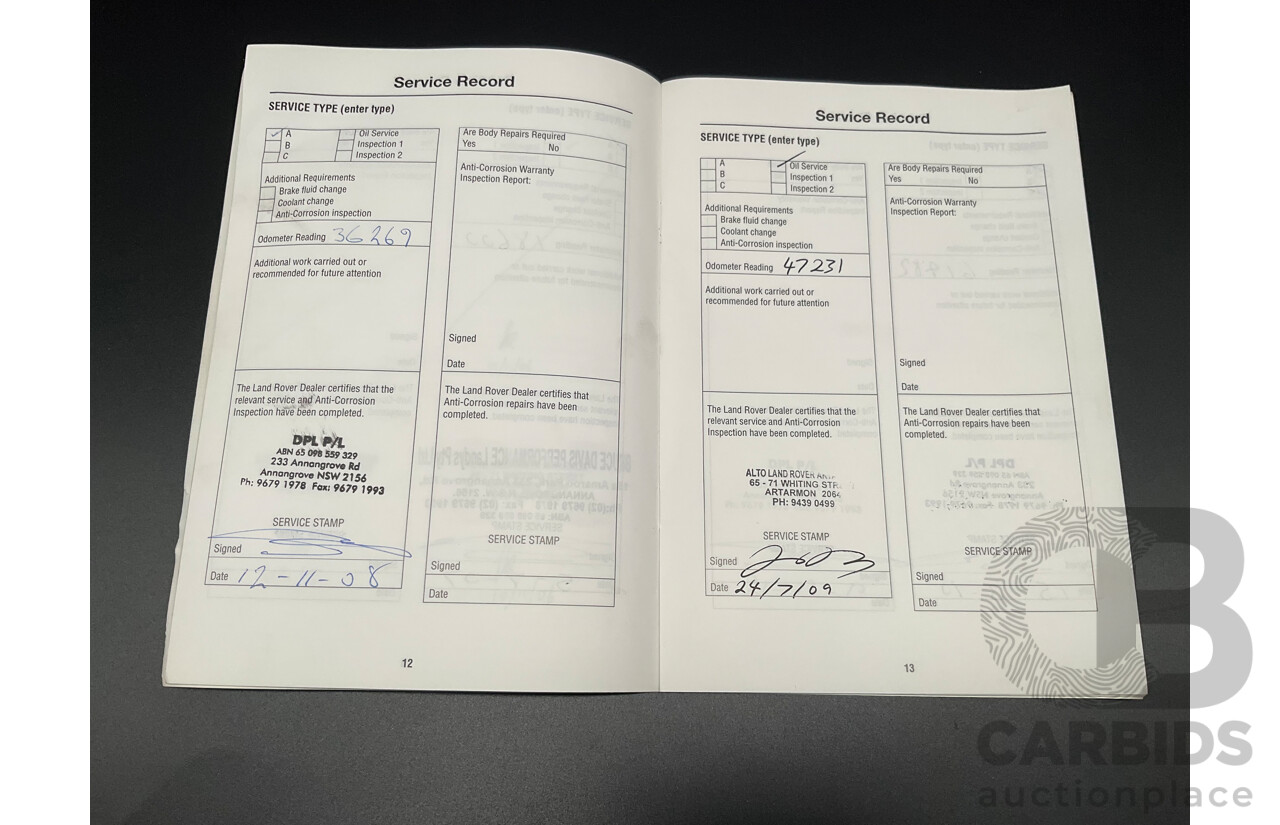 Service Record
SERVICE TYPE (enter type)
A
B
C
Oil Service
Inspection 1
Inspection 2
Additional Requirements
Brake fluid change
Coolant change
Anti-Corrosion inspection
Odometer Reading 36269
Additional work carried out or
recommended for future attention
The Land Rover Dealer certifies that the
relevant service and Anti-Corrosion
Inspection have been completed.
DPL P/L
ABN 65 098 559 329
233 Annangrove Rd
Annangrove NSW 2156
Ph: 9679 1978 Fax: 9679 1993
SERVICE STAMP
Signed
Date 12-11-08
Are Body Repairs Required
Yes No
Anti-Corrosion Warranty
Inspection Report:
Signed
Date
The Land Rover Dealer certifies that
Anti-Corrosion repairs have been
completed.
SERVICE STAMP
Signed
Date
12
Service Record
SERVICE TYPE (enter type)
A
B
C
Oil Service
Inspection 1
Inspection 2
Additional Requirements
Brake fluid change
Coolant change
Anti-Corrosion inspection
Odometer Reading 47231
Additional work carried out or
recommended for future attention
The Land Rover Dealer certifies that the
relevant service and Anti-Corrosion
Inspection have been completed.
ALTO LAND ROVER
65 - 71 WHITING STR
ARTARMON 2064
PH: 9439 0499
SERVICE STAMP
Signed
Date 24/7/09
Are Body Repairs Required
Yes No
Anti-Corrosion Warranty
Inspection Report:
Signed
Date
The Land Rover Dealer certifies that
Anti-Corrosion repairs have been
completed.
SERVICE STAMP
Signed
Date
13
CARBIDS
auctionplace